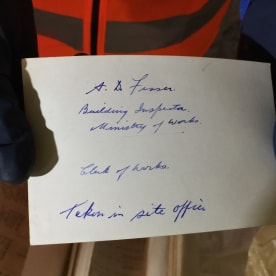 A. D. Fisser.
Building Inspector
Ministry of Works.
Clerk of Works
Taken in site office